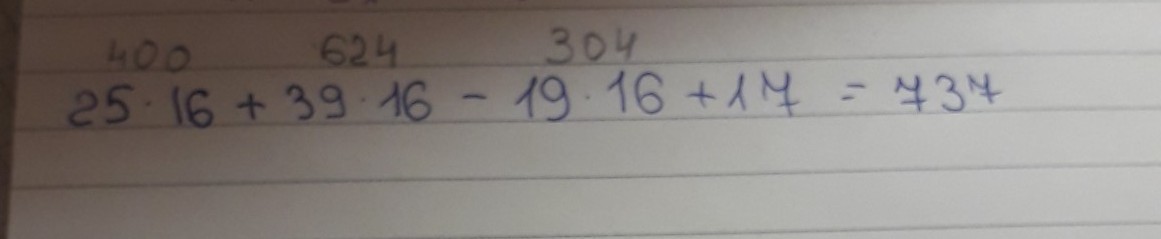 400 624 304
25·16 + 39·16 - 19·16 + 17 = 737